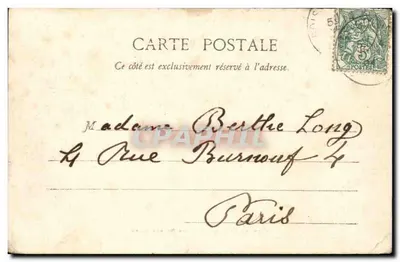 CARTE POSTALE
Ce côté est exclusivement réservé à l'adresse.
Madame Berthe Long
4 Rue Burnouf 4
Paris